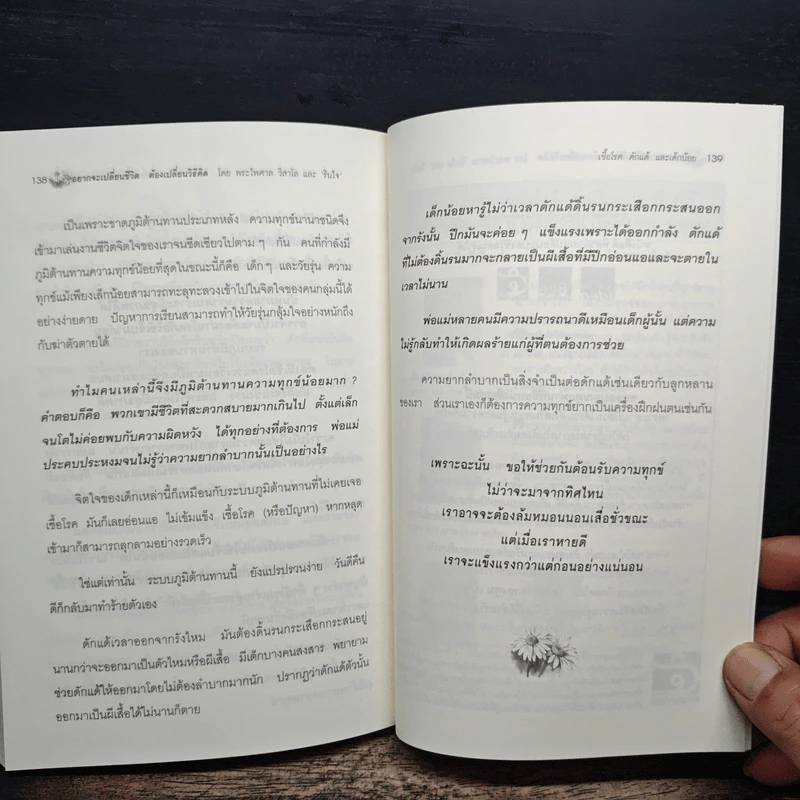 138 อยากจะเปลี่ยนชีวิต ต้องเปลี่ยนวิธีคิด โดย พระไพศาล วิสาโล และ 'รินใจ'
เป็นเพราะขาดภูมิต้านทานประเภทหลัง ความทุกข์นานาชนิดจึง
เข้ามาเล่นงานชีวิตจิตใจของเราจนซีดเซียวไปตามๆ กัน คนที่กำลังมี
ภูมิต้านทานความทุกข์น้อยที่สุดในขณะนี้ก็คือ เด็กๆ และวัยรุ่น ความ
ทุกข์แม้เพียงเล็กน้อยสามารถทะลุทะลวงเข้าไปในจิตใจของคนกลุ่มนี้ได้
อย่างง่ายดาย ปัญหาการเรียนสามารถทำให้วัยรุ่นกลุ้มใจอย่างหนักถึง
กับฆ่าตัวตายได้
ทำไมคนเหล่านี้จึงมีภูมิต้านทานความทุกข์น้อยมาก ?
คำตอบก็คือ พวกเขามีชีวิตที่สะดวกสบายมากเกินไป ตั้งแต่เล็ก
จนโตไม่ค่อยพบกับความผิดหวัง ได้ทุกอย่างที่ต้องการ พ่อแม่
ประคบประหงมจนไม่รู้ว่าความยากลำบากนั้นเป็นอย่างไร
จิตใจของเด็กเหล่านี้ก็เหมือนกับระบบภูมิต้านทานที่ไม่เคยเจอ
เชื้อโรค มันก็เลยอ่อนแอ ไม่เข้มแข็ง เชื้อโรค (หรือปัญหา) หากหลุด
เข้ามาก็สามารถลุกลามอย่างรวดเร็ว
ใช่แต่เท่านั้น ระบบภูมิต้านทานนี้ ยังแปรปรวนง่าย วันดีคืน
ดีก็กลับมาทำร้ายตัวเอง
ดักแด้เวลาออกจากรังไหม มันต้องดิ้นรนกระเสือกกระสนอยู่
นานกว่าจะออกมาเป็นตัวไหมหรือผีเสื้อ มีเด็กบางคนสงสาร พยายาม
ช่วยดักแด้ให้ออกมาโดยไม่ต้องลำบากมากนัก ปรากฏว่าดักแด้ตัวนั้น
ออกมาเป็นผีเสื้อได้ไม่นานก็ตาย
เชื้อโรค ดักแด้ และเด็กน้อย 139
เด็กน้อยหารู้ไม่ว่าเวลาดักแด้ดิ้นรนกระเสือกกระสนออก
จากรังนั้น ปีกมันจะค่อยๆ แข็งแรงเพราะได้ออกกำลัง ดักแด้
ที่ไม่ต้องดิ้นรนมากจะกลายเป็นผีเสื้อที่มีปีกอ่อนแอและจะตายใน
เวลาไม่นาน
พ่อแม่หลายคนมีความปรารถนาดีเหมือนเด็กผู้นั้น แต่ความ
ไม่รู้กลับทำให้เกิดผลร้ายแก่ผู้ที่ตนต้องการช่วย
ความยากลำบากเป็นสิ่งจำเป็นต่อดักแด้เช่นเดียวกับลูกหลาน
ของเรา ส่วนเราเองก็ต้องการความทุกข์ยากเป็นเครื่องฝึกฝนตนเช่นกัน
เพราะฉะนั้น ขอให้ช่วยกันต้อนรับความทุกข์
ไม่ว่าจะมาจากทิศไหน
เราอาจจะต้องล้มหมอนนอนเสื่อชั่วขณะ
แต่เมื่อเราหายดี
เราจะแข็งแรงกว่าแต่ก่อนอย่างแน่นอน